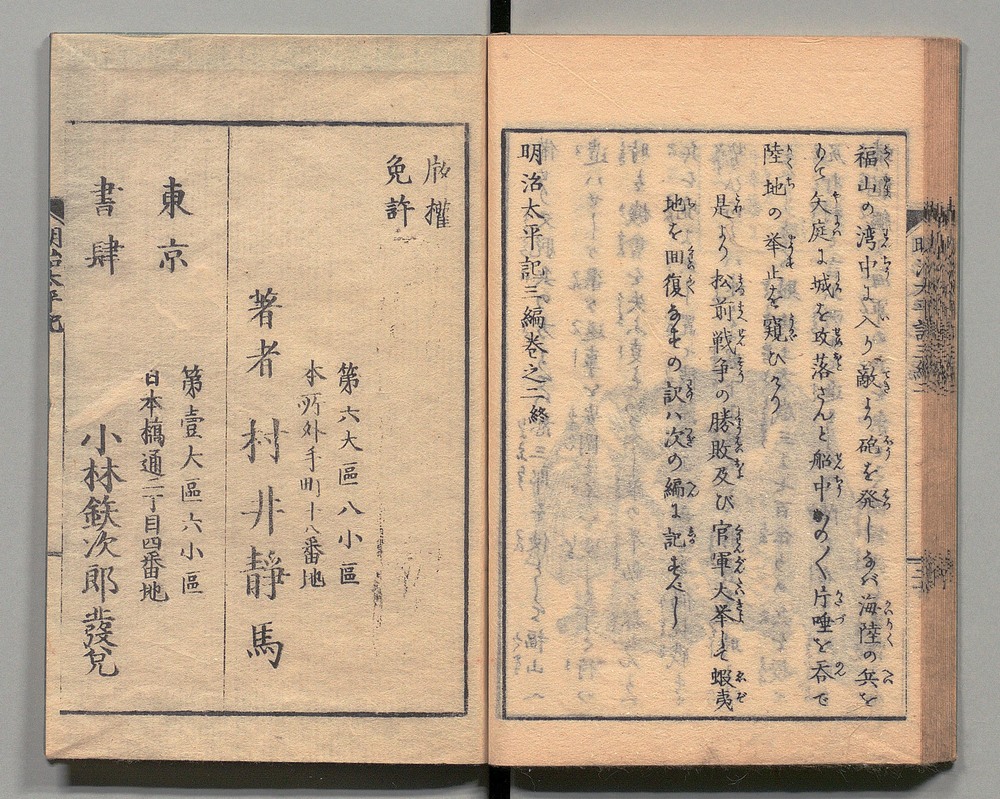 福山の湾中に入り敵より砲を発しなバ海陸の兵を
もて矢庭に城を攻落さんと船中おの〳〵片唾を呑で
陸地の挙止を窺ひけり
是より松前戦争の勝敗及び官軍大挙して蝦夷
地を回復なすの訳ハ次の編に記すべし
明治太平記三編巻之二終
明治太平記三編
版權
免許
第六大區八小區
本所外手町十八番地
著者 村井靜馬
東京
書肆
第壹大區六小區
日本橋通二丁目四番地
小林鉄次郎發兌
明治太平記